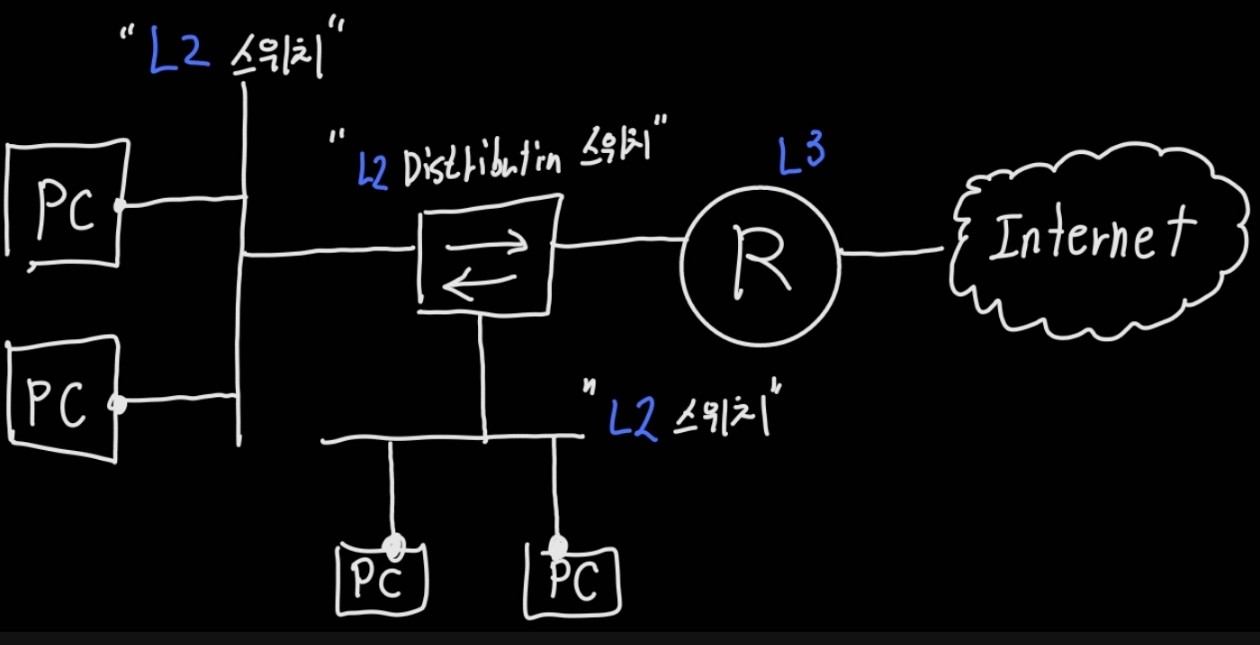 "L2 스위치"
"L2 Distributin 스위치"
L3
PC
R
Internet
PC
"L2 스위치"
PC
PC